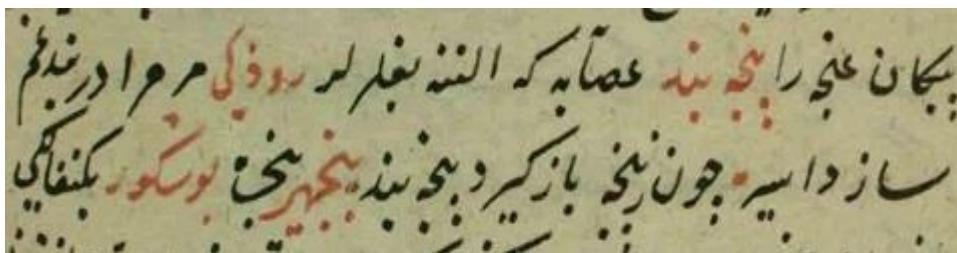 پیکان غنجه را پنجه بند عصابه که النه بغلر لر رودکی مر مرا در بند غم
ساز داسیر چون زنخ باز کیر د پنجه بند پنجهیر پنجره بوشکور بکنفاکی